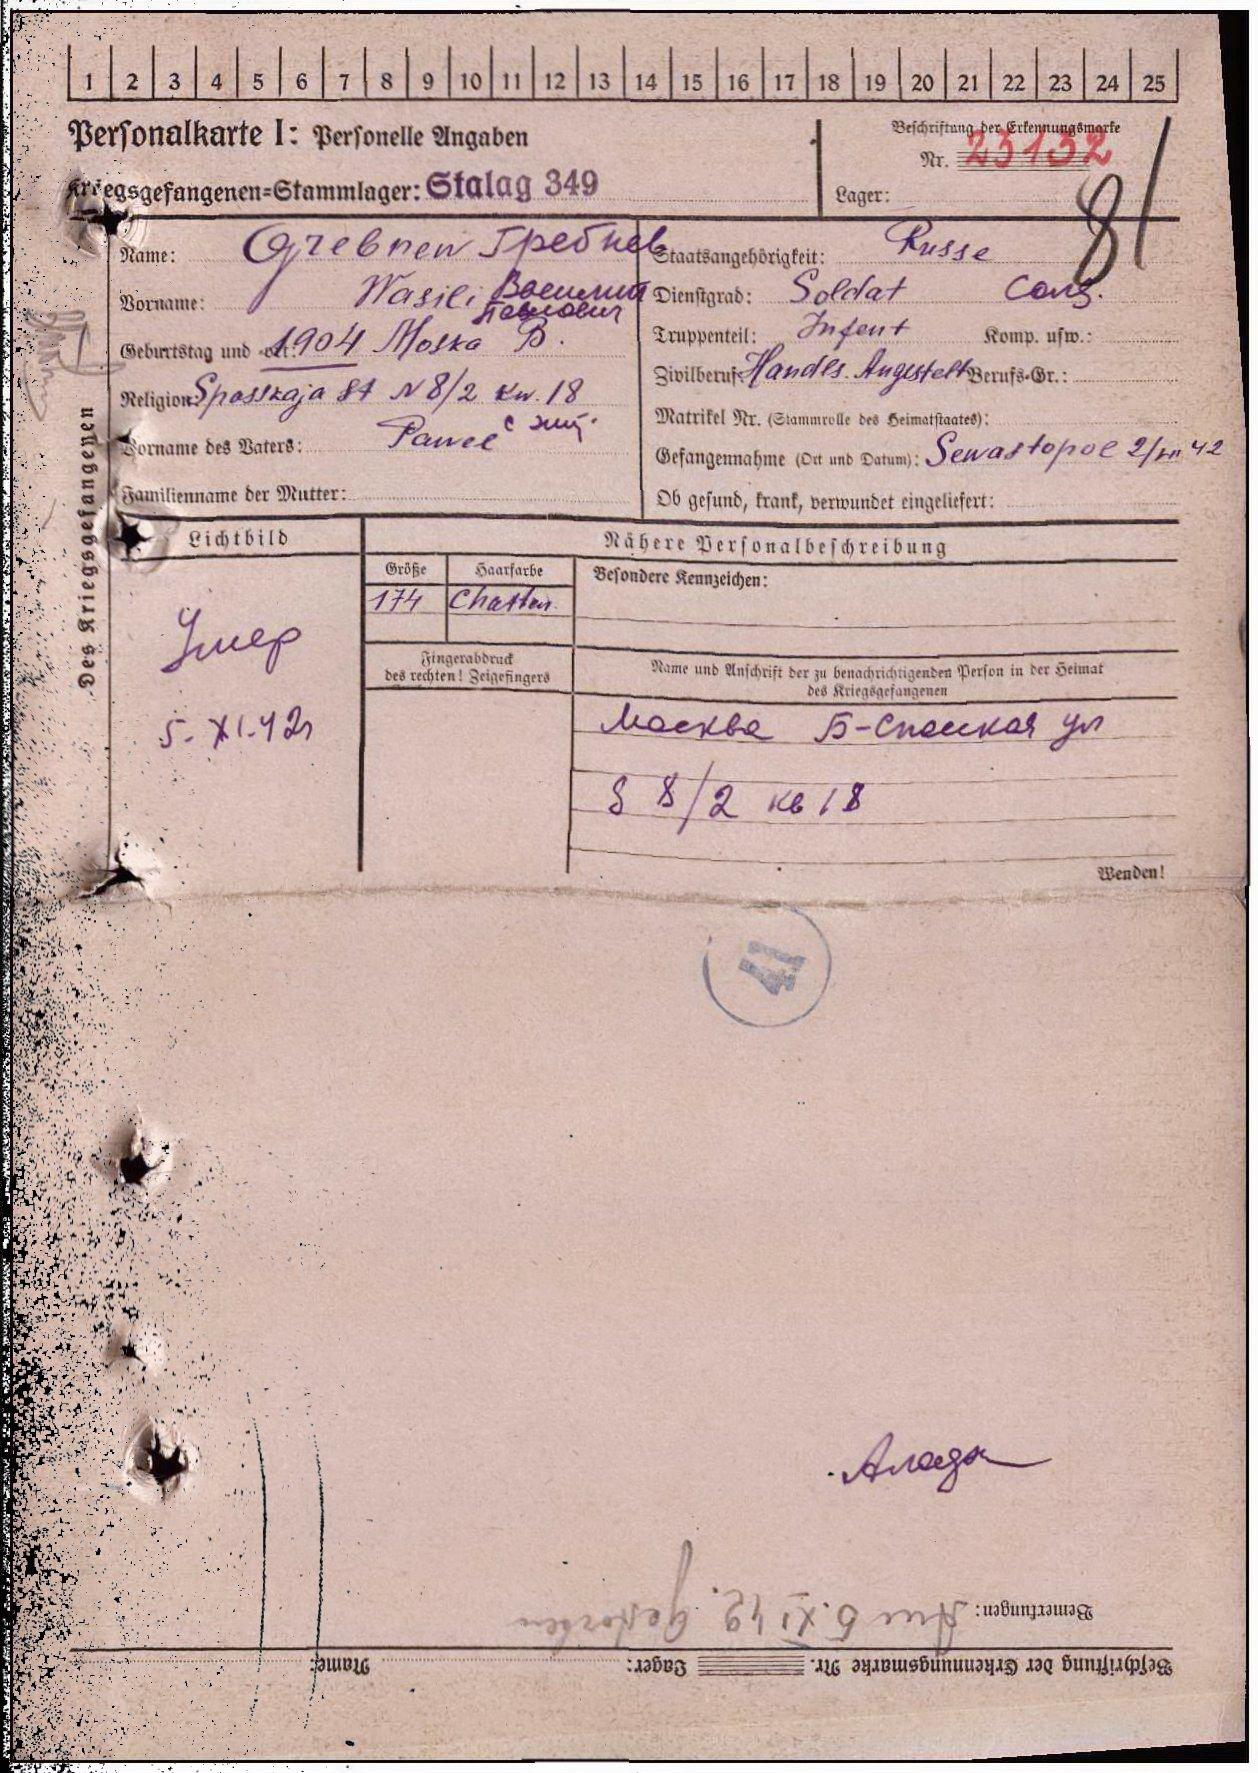 1 2 3 4 5 6 7 8 9 10 11 12 13 14 15 16 17 18 19 20 21 22 23 24 25
Personalkarte I: Personelle Angaben
Kriegsgefangenen=Stammlager: Stalag 349
Beschriftung der Erkennungsmarke
Nr. 23132
Lager:
81
Des Kriegsgefangenen
Name: Grebnew Гребнев
Vorname: Wasili Василий
Павлович
Geburtstag und =ort: 1904 Moska В.
Religion: Spasskaja St N 8/2 Kw. 18
Vorname des Vaters: Pawel
Familienname der Mutter:
Staatsangehörigkeit: Russe
Dienstgrad: Soldat Солд.
Truppenteil: Infent Komp. usw.:
Zivilberuf: Handls. Angestelt Berufs=Gr.:
Matrikel Nr. (Stammrolle des Heimatstaates):
Gefangennahme (Ort und Datum): Sewastopol 2/VII 42
Ob gesund, krank, verwundet eingeliefert:
Lichtbild
Умер
5-XI-42г
Nähere Personalbeschreibung
Größe Haarfarbe Besondere Kennzeichen:
174 Chatten
Fingerabdruck
des rechten! Zeigefingers
Name und Anschrift der zu benachrichtigenden Person in der Heimat
des Kriegsgefangenen
Москва Б-Спасская ул
8/2 кв 18
Wenden!
41
Bemerkungen: Am 5. XI 42. gestorben
Beschriftung der Erkennungsmarke Nr. Lager: Name: